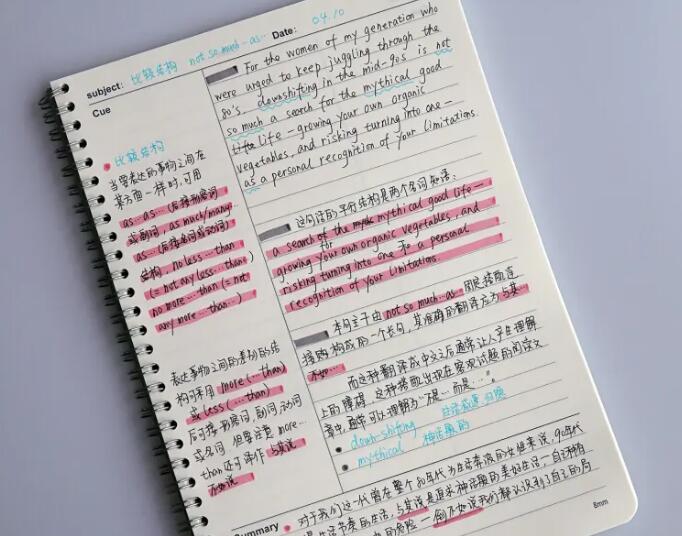 subject: 比较结构 not so much…as… Date: 04.10
Cue
比较结构
当要表达的事物之间在
某方面一样时，可用
as…as…(后接形容词
或副词, as much/many…
as…(后接名词或动词)
结构, no less…than
(= not any less…than)
no more…than (= not
any more…than…)
表达事物之间的差别的结
构可采用 more(…than)
或 less(…than)
后可接形容词, 副词, 动词
或名词, 但要注意 more…
than还可译作 与其说
不如说
For the women of my generation who
were urged to keep juggling through the
80's, downshifting in the mid-90s is not
so much a search for the mythical good
life — growing your own organic
vegetables, and risking turning into one —
as a personal recognition of your limitations.
这句话的平行结构是两个名词短语:
a search of the mythical good life —
for
growing your own organic vegetables, and
risking turning into one 和 a personal
recognition of your limitations.
本句主干由 not so much…as
构成的一个长句, 其准确的翻译应为 与其…
不如…
而这种翻译成中文之后通常让人产生理解
上的障碍, 这种搭配出现在客观试题的阅读文
章中, 通常可以理解为"不是…而是…"。
down-shifting
mythical 神话般的
Summary
对于我们这一代曾在整个80年代为生活奔波的女性来说, 90年代
生活节奏的生活, 与其说是追求神话般的美好生活 — 自己种有
的危险 — 倒不如说我们都认识到了自己的局
8mm